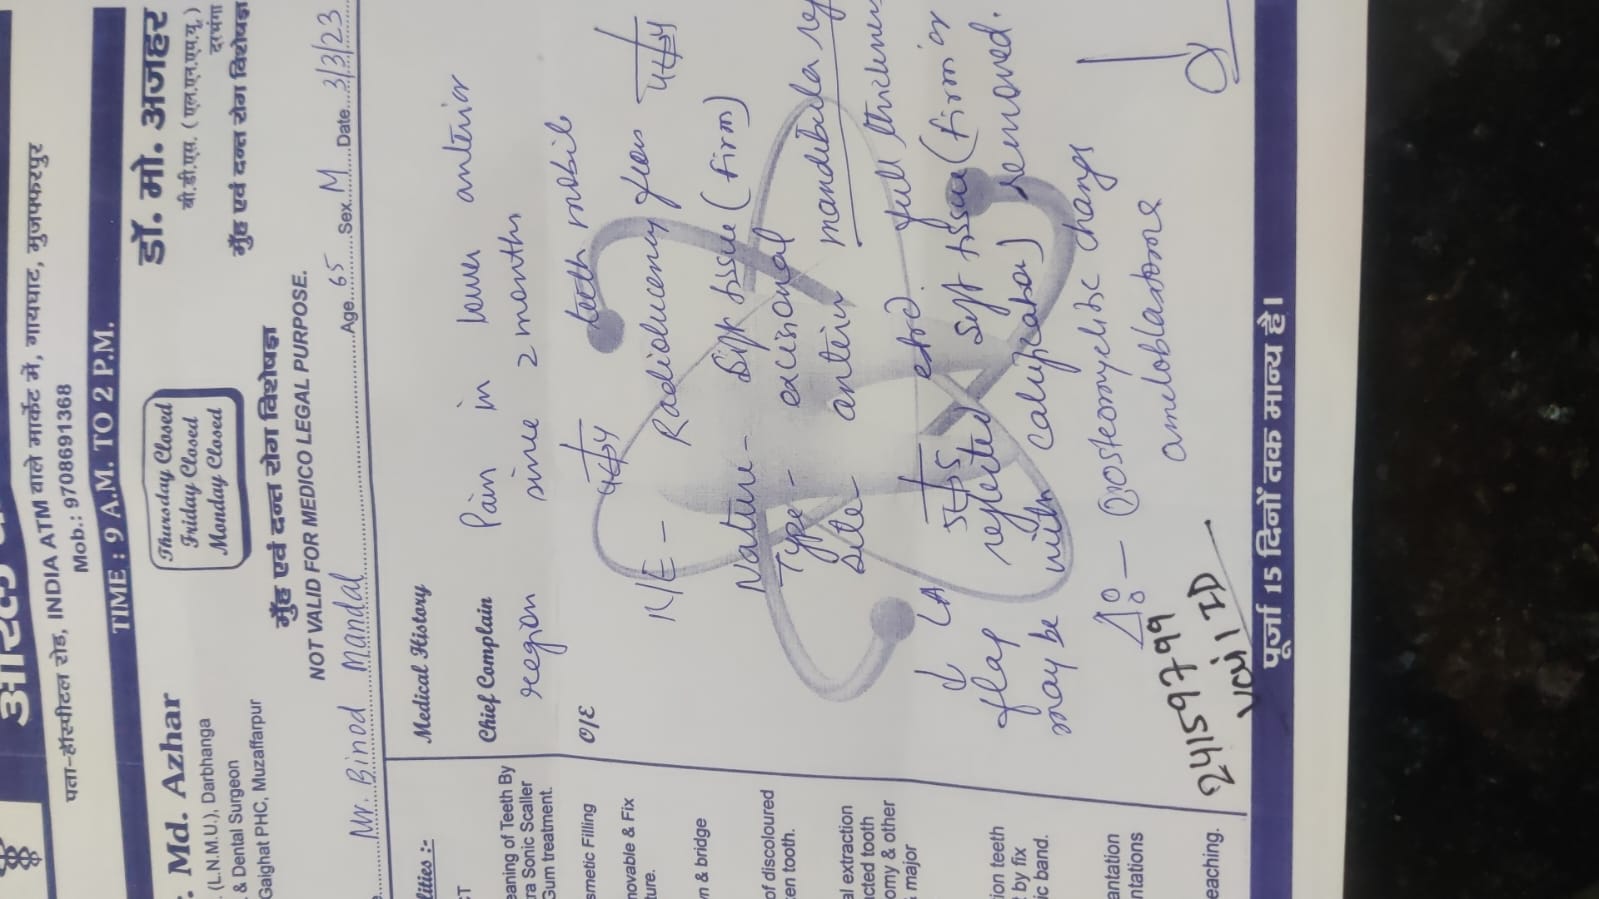 पता-हॉस्पीटल रोड, INDIA ATM वाले मार्केट में, गायघाट, मुजफ्फरपुर
Mob.: 9708691368
TIME : 9 A.M. TO 2 P.M.
Md. Azhar
(L.N.M.U.), Darbhanga
& Dental Surgeon
Gaighat PHC, Muzaffarpur
Thursday Closed
Friday Closed
Monday Closed
डॉ. मो. अजहर
बी.डी.एस. (एल.एन.एम.यू.)
दरभंगा
मुँह एवं दन्त रोग विशेषज्ञ
मुँह एवं दन्त रोग विशेषज्ञ
NOT VALID FOR MEDICO LEGAL PURPOSE.
Mr. Binod Mandal Age 65 Sex M Date 3/3/23
lities :-
CT
eaning of Teeth By
tra Sonic Scaller
Gum treatment.
smetic Filling
novable & Fix
ture.
n & bridge
of discoloured
ten tooth.
al extraction
acted tooth
omy & other
major
ion teeth
t by fix
ic band.
antation
ntations
eaching.
Medical History
Chief Complain Pain in lower anterior
region since 2 months
O/E teeth mobile
Radiolucency from
Nature - tissue (firm)
Type - excisional
Site - anterior mandibular
LA full
flap reflected soft tissue (firm or
may be with removed.
Δ - Osteomyelitic change
ameloblastoma
24159799
ID
पूर्जा 15 दिनों तक मान्य है।